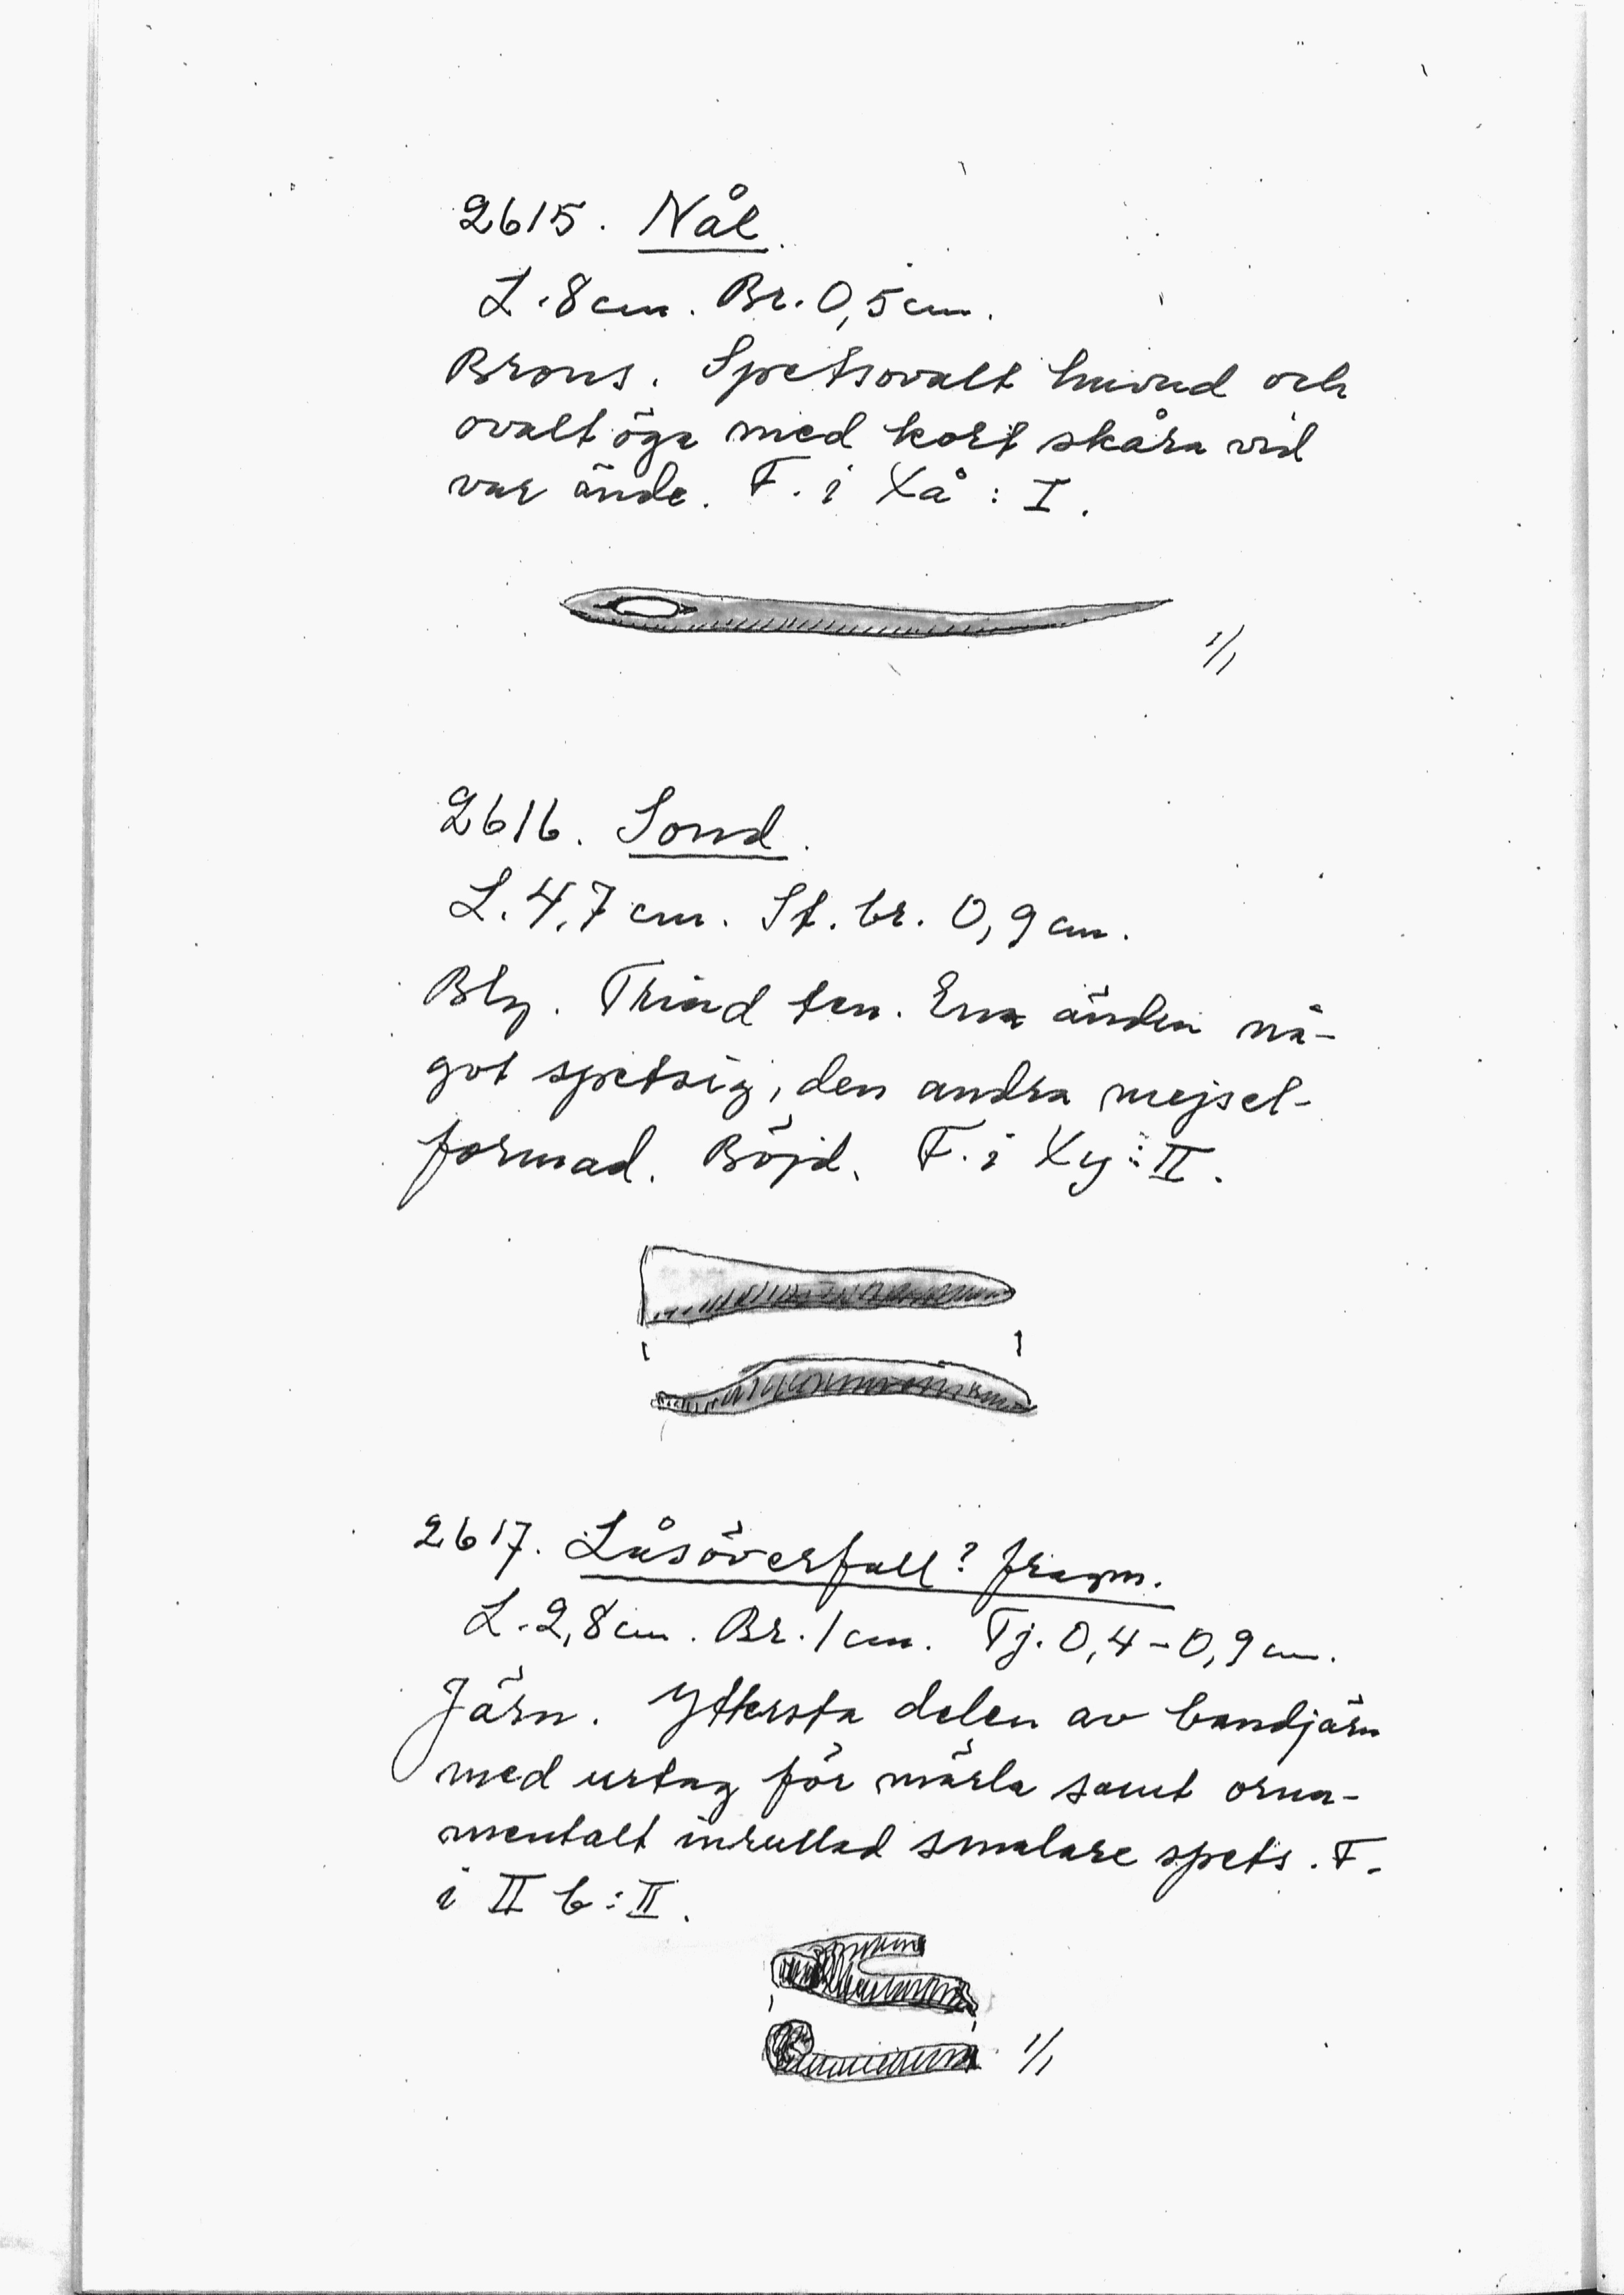 2615. Nål.
L. 8 cm. Br. 0,5 cm.
Brons. Spetsovalt huvud och
ovalt öga med kort skåra vid
var ände. F. i Xå : I.
1/1
2616. Sond.
L. 4,7 cm. St. br. 0,9 cm.
Bly. Trind ten. Ena änden nå-
got spetsig, den andra mejsel-
formad. Böjd. F. i Xy : II.
2617. Låsöverfall? fragm.
L. 2,8 cm. Br. 1 cm. Tj. 0,4-0,9 cm.
Järn. Yttersta delen av bandjärn
med urtag för märla samt orna-
mentalt inrullad smalare spets. F.
i II b : II.
1/1